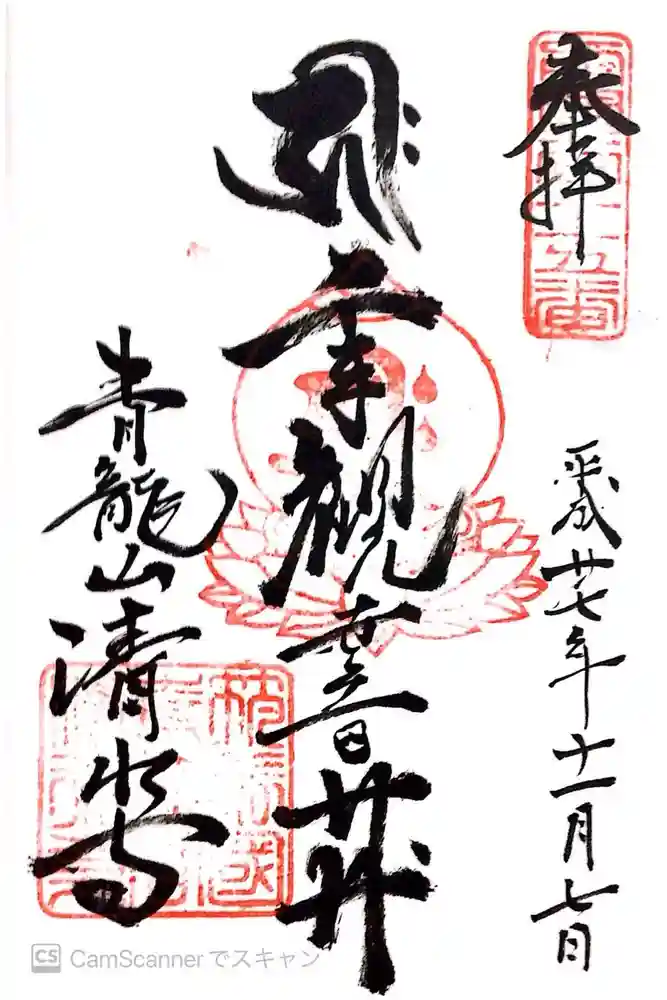 奉拝
平成廿七年十一月七日
千手觀世音𦬇
青龍山清水寺
CS CamScannerでスキャン